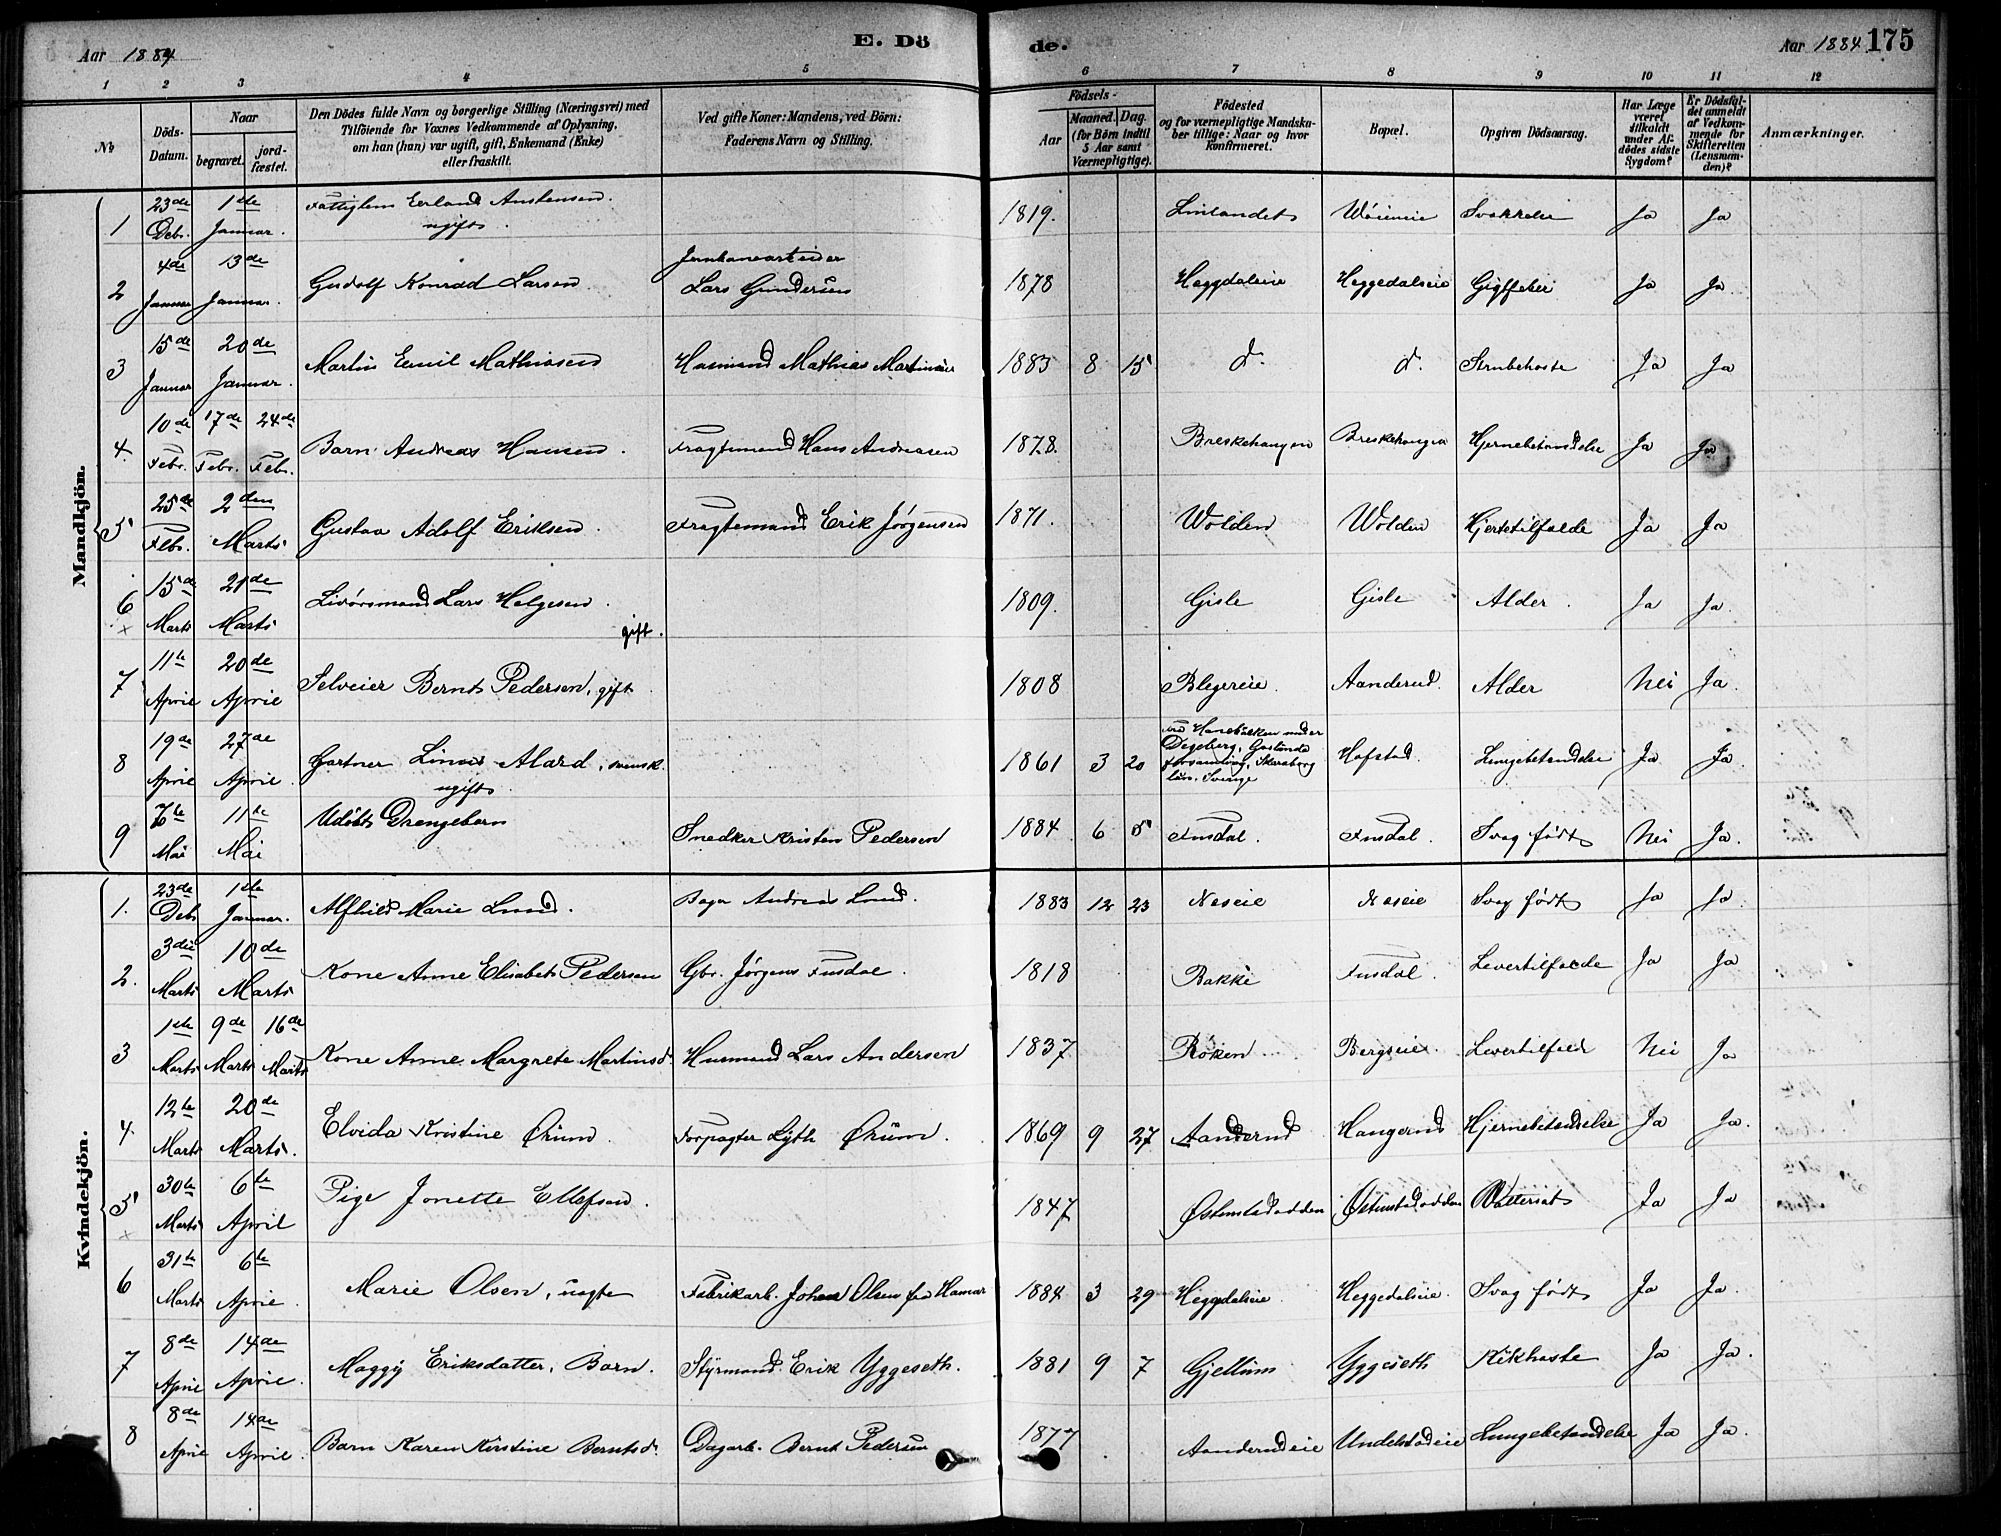 Aar 1884
E. Dö
de.
Aar 1884. 175
1 2 3 4 5 6 7 8 9 10 11 12
No
Döds-Datum.
Naar
begravet.
jord-fæstet.
Den Dödes fulde Navn og borgerlige Stilling (Næringsvei) med
Tilföiende for Voxnes Vedkommende af Oplysning,
om han (hun) var ugift, gift, Enkemand (Enke)
eller fraskilt.
Ved gifte Koner: Mandens, ved Börn:
Faderens Navn og Stilling.
Födsels-
Aar
Maaned. Dag.
(for Börn indtil
5 Aar samt
Værnepligtige).
Födested
og for værnepligtige Mandska-
ber tillige: Naar og hvor
konfirmeret.
Bopæl.
Opgiven Dödsaarsag.
Har Læge
været
tilkaldt
under Af-
dödes sidste
Sygdom?
Er Dödsfal-
det anmeldt
af Vedkom-
mende for
Skifteretten
(Lensman-
den)?
Anmærkninger.
Mandkjön.
1 23de Debr. 1ste Januar. Fattiglem Erland Anstensen. ugift. 1819. Linlandet Svækkelse Ja Ja
2 4de Januar 13de Januar. Gudolf Konrad Larsen Lars Gundersen 1878 Heggdaleie Heggedalseie Gigtfeber Ja Ja
3 15de Januar 20de Januar. Martin Emil Mathiasen Husmand Mathias Martinsen 1883 8 15 d. d. Strubehoste Ja Ja
4. 10de Febr. 17de Febr. 24de Febr. Barn Andreas Hansen. Fragtemand Hans Andreasen 1878. Breskehaugen Breskehaugen Hjernebetændelse Ja Ja
5 25de Febr. 2den Marts Gustav Adolf Eriksen. Fragtemand Erik Jörgensen 1871. Wolden Wolden Hjertetilfælde Ja Ja
6 15de Marts 21de Marts Livörsmand Lars Helgesen. gift. 1809. Gisle Gisle Alder. Ja Ja.
7 11te April 20de April Selveier Bernt Pedersen, gift. 1808 Blegereie. Aanderud. Alder Nei Ja.
8 19de April 27de April. Gartner Linus Alard, svensk. ugift. 1861 3 20 fra under Degeberg, forsamling, Skaraborg län, Sverige Hofstad. Lungebetændelse Ja Ja.
9 7te Mai 11te Mai Udöbt Drengebarn Snedker Kristen Pedersen 1884. 6 5 Fusdal. Fusdal. Svag födt Nei Ja.
Kvindekjön.
1. 23de Debr 1ste Januar. Alfhild Marie Lund. Bager Andreas Lund. 1883 12 23 Neseie Neseie Svag födt Ja Ja.
2. 3die Marts 10de Marts Kone Anne Elisabeth Pedersen Gbr. Jörgens Fusdal. 1818 Bakke Fusdal. Levertilfælde Ja Ja
3 1ste Marts 9de Marts 16de Marts Kone Anne Margrete Martinsd. Husmand Lars Andersen 1837 Röken Bergseie. Levertilfæld Nei Ja
4. 12te Marts 20de Marts. Elvida Kristine Örum. Forpagter Lyth Örum. 1869 9 27 Aanderud Haugerud Hjernebetændelse Ja Ja.
5 30te Marts 6te April Pige Jonette Ellefsen. 1847 Östenstadodden Östenstadodden Vattersot Ja Ja
6 31te Marts 6te April. Marie Olsen, uægte Fabrikarb. Johan Olsen fra Hamar 1884 3 29 Heggdalseie Heggedalseie. Svag födt Ja Ja.
7 8de April 14de April. Maggy Eriksdatter, Barn. Styrmand. Erik Yggeseth. 1881 9 7 Gjellum Yggeseth Kikhoste Ja Ja.
8 8de April 14de April. Barn Karen Kirstine Berntsd. Dagarb. Bernt Pedersen 1877 Aanderudeie Undelstadeie Lungebetændelse Ja Ja.